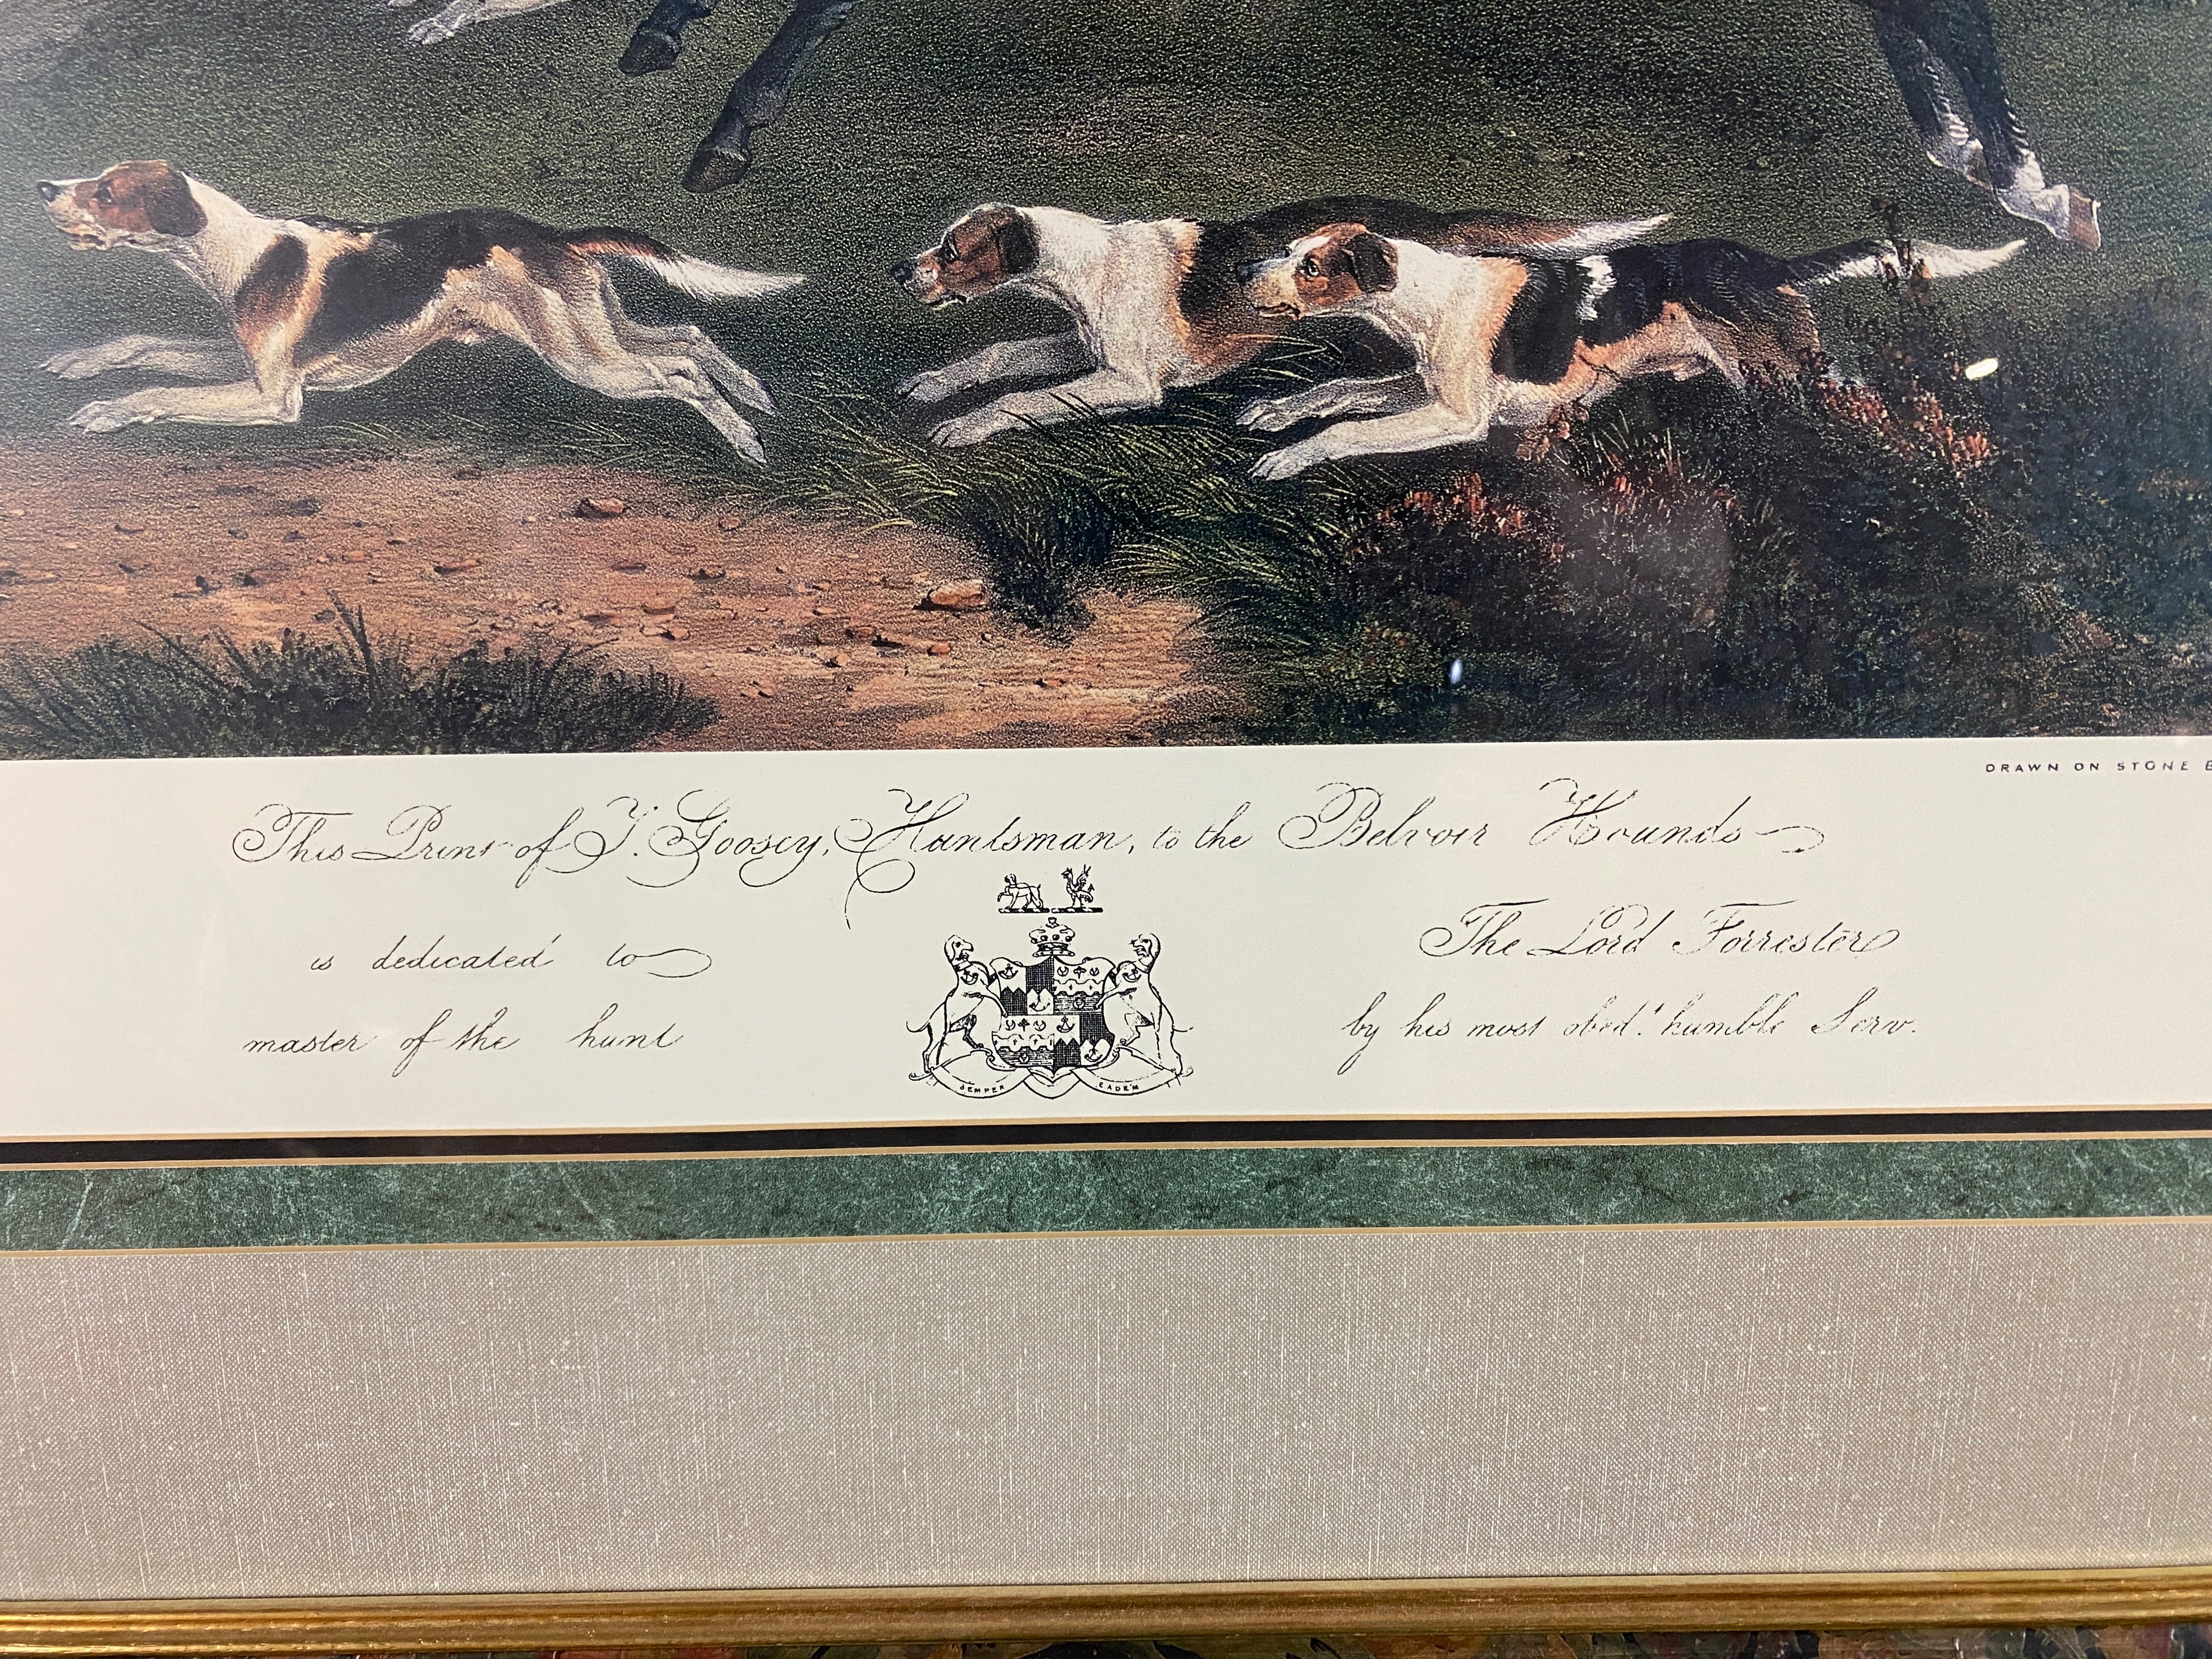 DRAWN ON STONE B
This Print of T. Goosey, Huntsman, to the Belvoir Hounds
is dedicated to
The Lord Forrester
master of the hunt
by his most obed.t humble Serv.
SEMPER EADEM